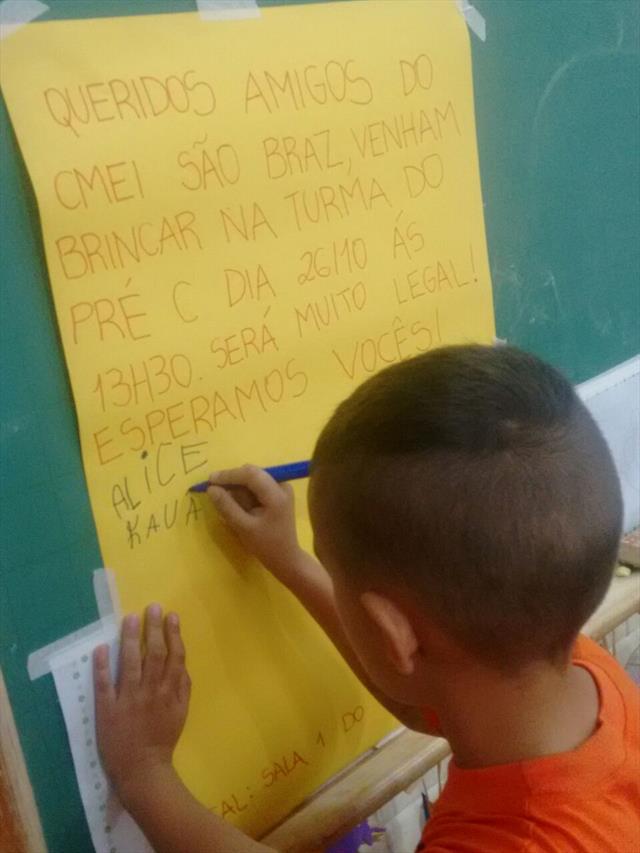 QUERIDOS AMIGOS DO
CMEI SÃO BRAZ, VENHAM
BRINCAR NA TURMA DO
PRÉ C DIA 26/10 ÁS
13H30. SERÁ MUITO LEGAL!
ESPERAMOS VOCÊS!
ALICE
KAUA
SALA 1 DO